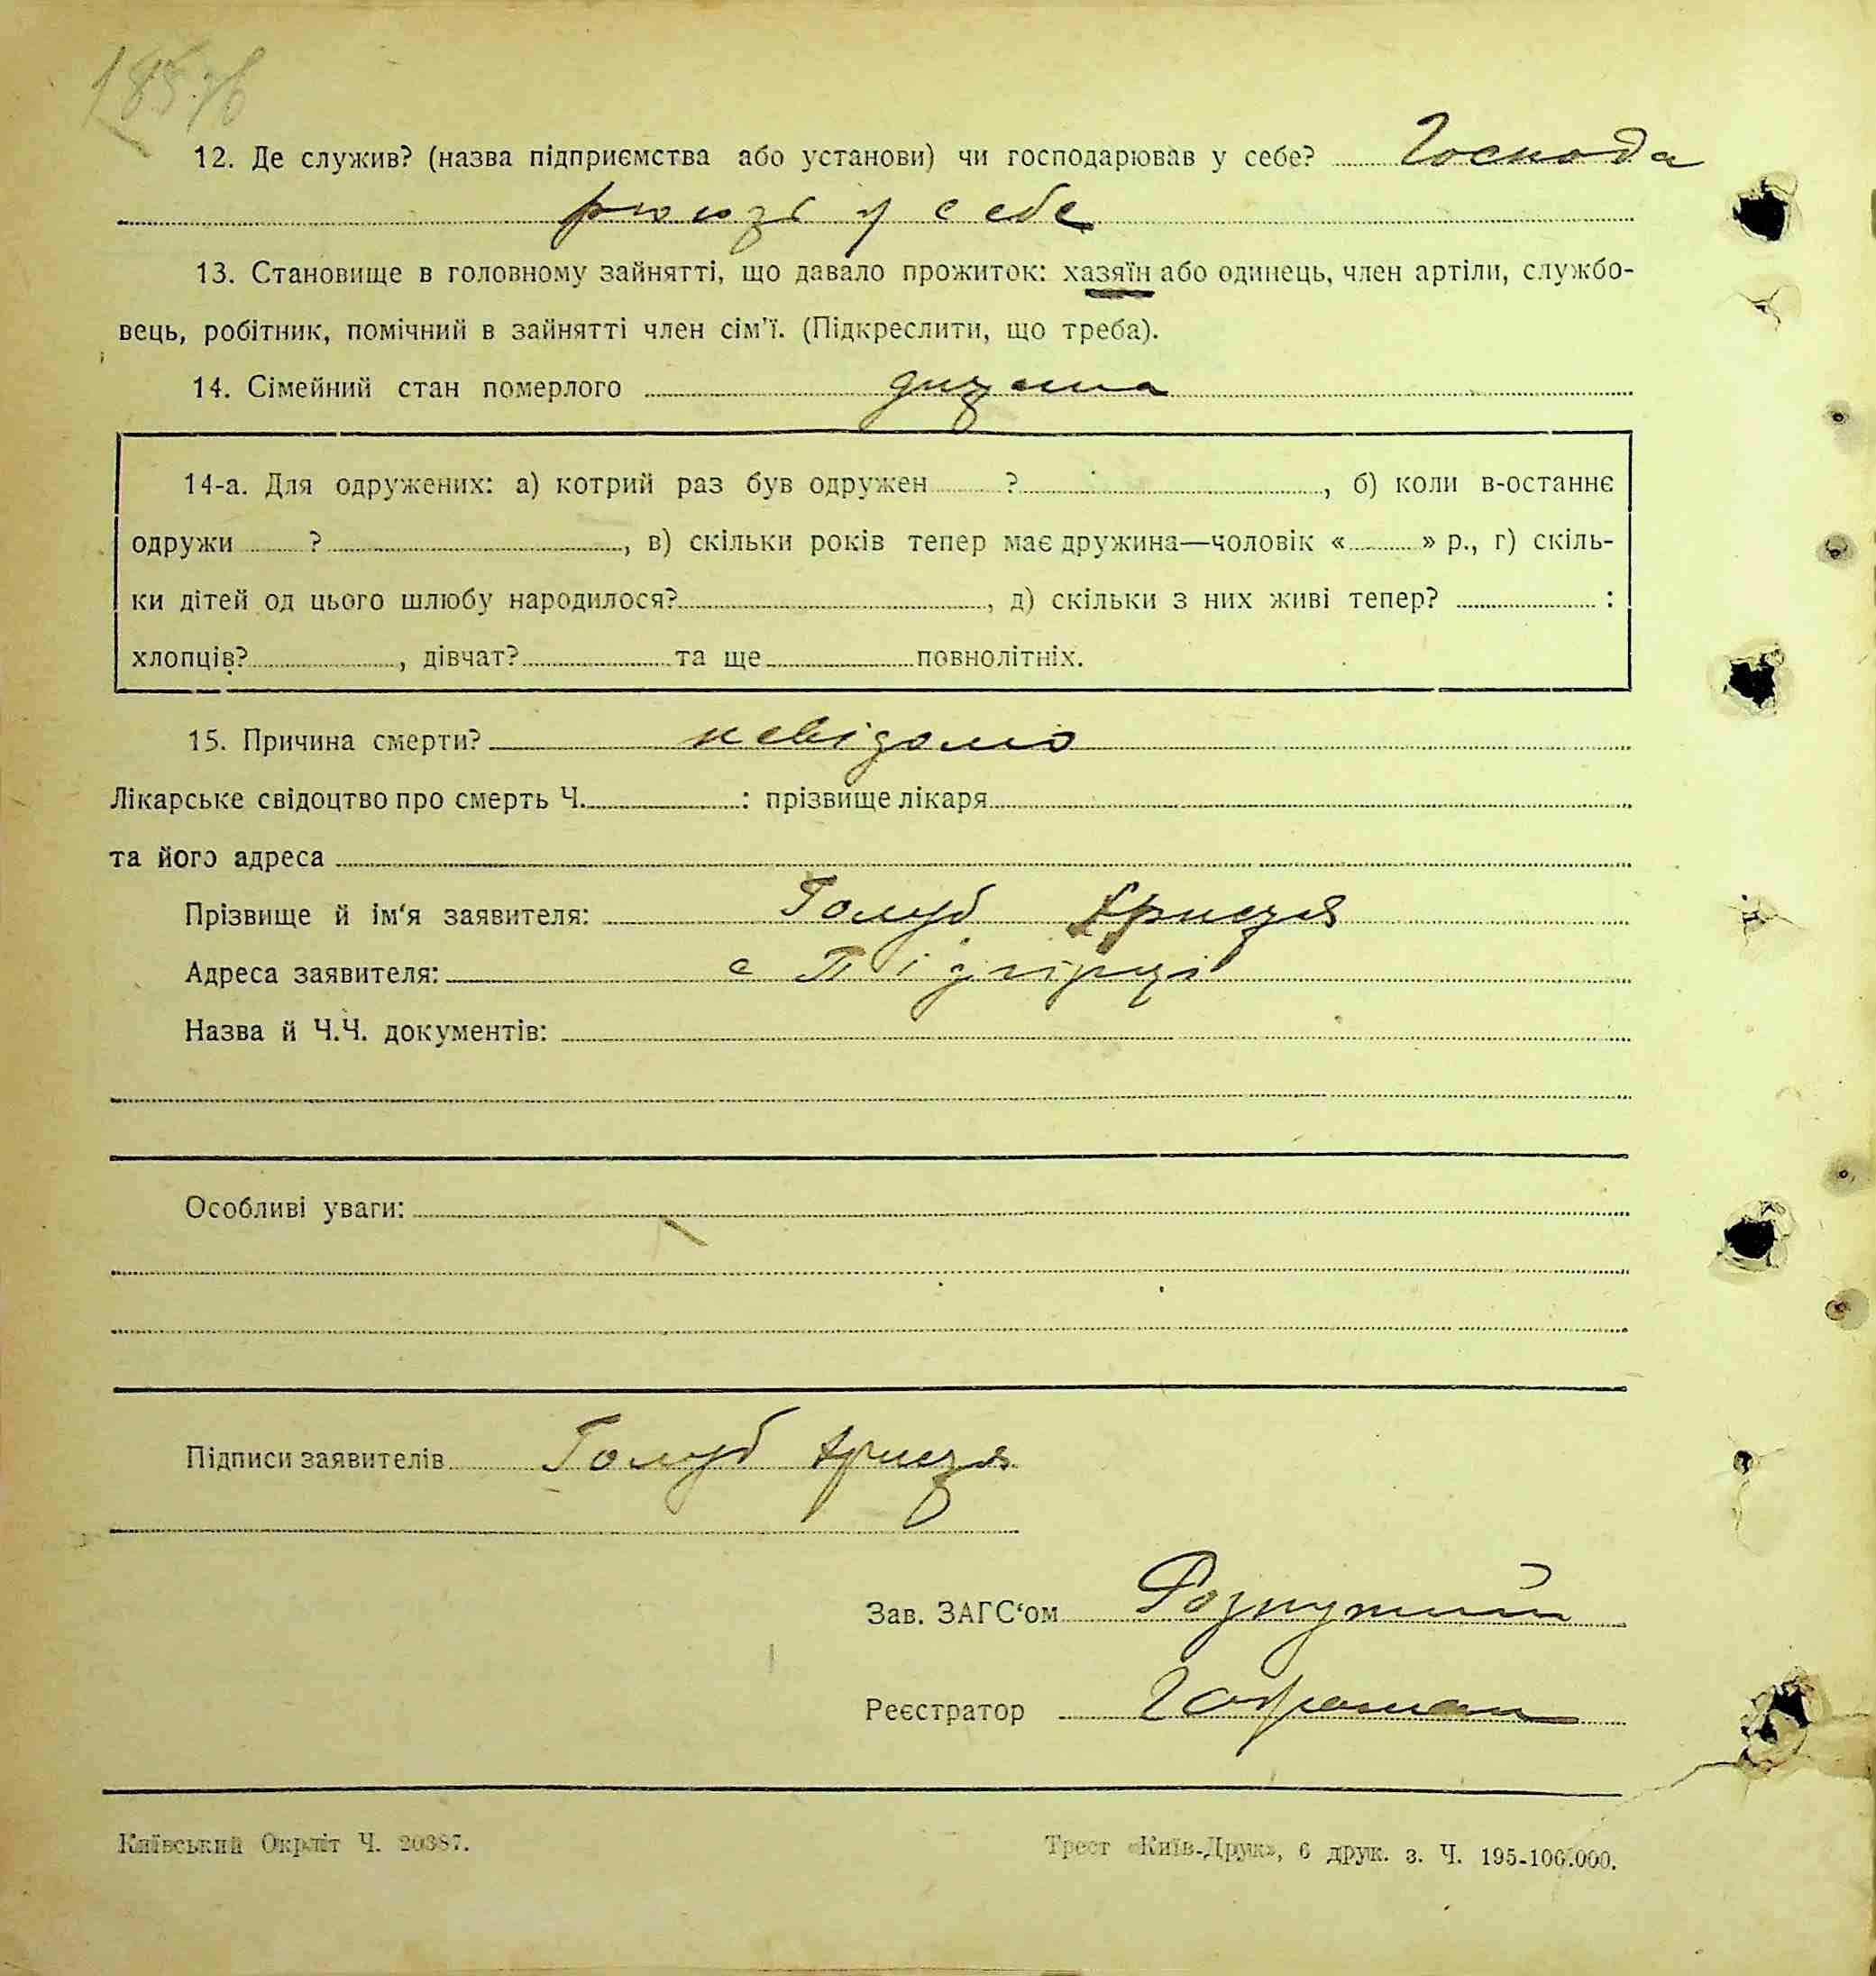 12. Де служив? (назва підприємства або установи) чи господарював у себе? Господа
рюють у себе
13. Становище в головному зайнятті, що давало прожиток: хазяїн або одинець, член артіли, службо-
вець, робітник, помічний в зайнятті член сім'ї. (Підкреслити, що треба).
14. Сімейний стан померлого дитина
14-а. Для одружених: а) котрий раз був одружен ? , б) коли в-останнє
одружи ? , в) скільки років тепер має дружина—чоловік « » р., г) скіль-
ки дітей од цього шлюбу народилося? , д) скільки з них живі тепер? :
хлопців? , дівчат? та ще повнолітніх.
15. Причина смерти? невідомо
Лікарське свідоцтво про смерть Ч. : прізвище лікаря
та його адреса
Прізвище й ім'я заявителя: Голуб
Адреса заявителя: с Підгірці
Назва й Ч.Ч. документів:
Особливі уваги:
Підписи заявителів Голуб
Зав. ЗАГС'ом
Реєстратор
Київський Окрліт Ч. 20387.
Трест «Київ-Друк», 6 друк. з. Ч. 195-100.000.